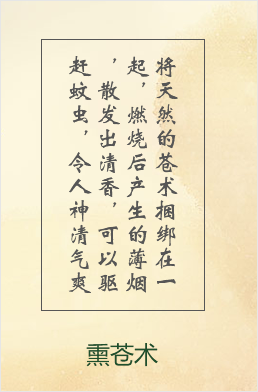 将天然的苍术捆绑在一
起，燃烧后产生的薄烟
，散发出清香，可以驱
赶蚊虫，令人神清气爽
熏苍术